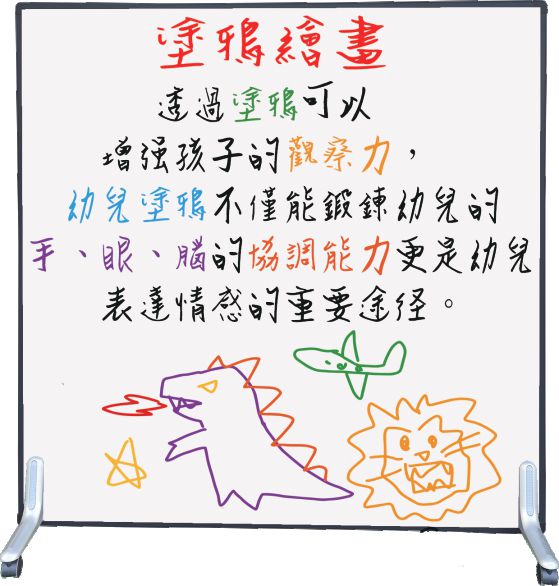 塗鴉繪畫
透過塗鴉可以
增强孩子的觀察力，
幼兒塗鴉不僅能鍛鍊幼兒的
手、眼、腦的協調能力更是幼兒
表達情感的重要途徑。